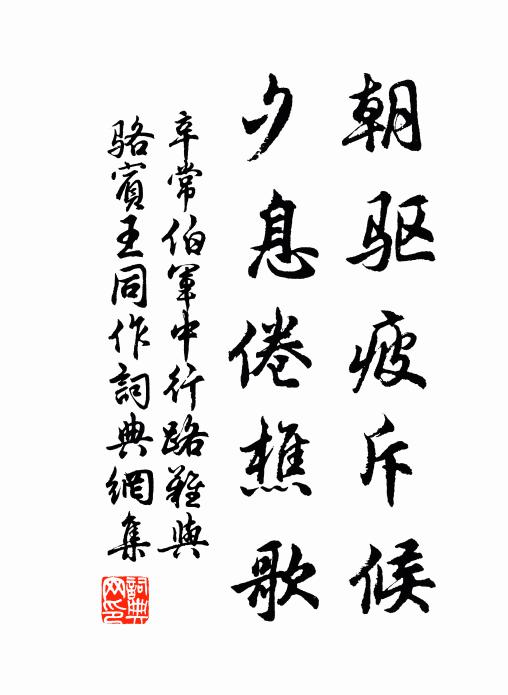 朝驱疲斥候
夕息倦樵歌
辛常伯軍中行路難與
駱賓王同作詞典網集
詞典网印